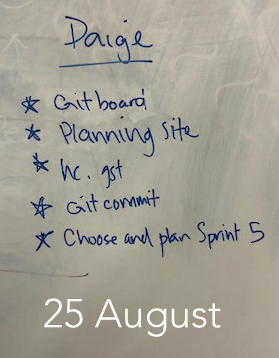 Paige
* Gitboard
* Planning Site
* hc. gst
* Git commit
* Choose and plan Sprint 5
25 August